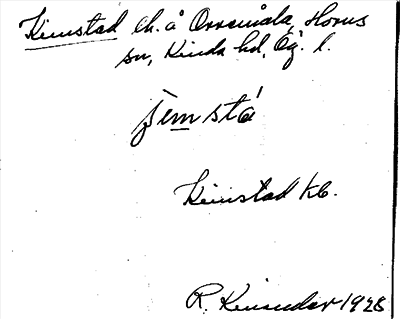 Kimstad ch. å Orremåla, Horns
sn, Kinda hd, Ög. l.
jemstá
Kimstad kb.
R. Kinander 1928